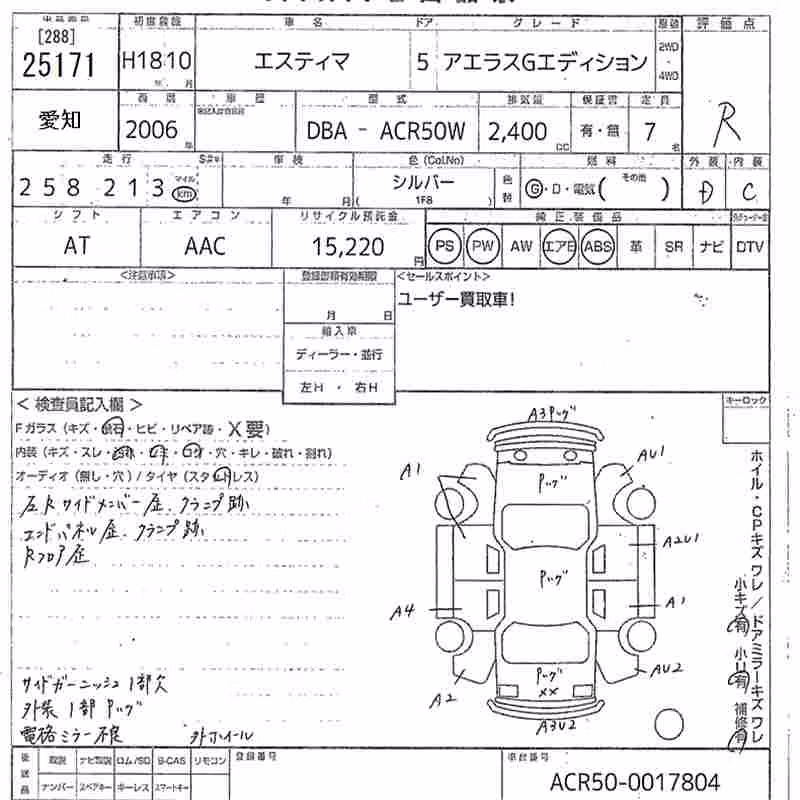 初度登録 車名 ドア グレード 評価点
[288]
25171 H18 10 エスティマ 5 アエラスGエディション 2WD 4WD
年 月
愛知 車歴 型式 排気量 保証書 定員 R
2006 年 DBA - ACR50W 2,400 CC 有・無 7 名
走行 車検 色(Col.No) 燃料 外装 内装
258 213 マイル km 年 月 シルバー 1F8 色替 G・D・電気( その他 ) D C
シフト エアコン リサイクル預託金 純正装備品
AT AAC 15,220 円 PS PW AW エアB ABS 革 SR ナビ DTV
<注意事項> 登録書類有効期限 <セールスポイント>
月 日 ユーザー買取車!
輸入車
ディーラー・並行
左H・右H
<検査員記入欄> キーロック
Fガラス(キズ・飛石・ヒビ・リペア跡・X要)
内装(キズ・スレ・・・・穴・キレ・破れ・割れ)
オーディオ(無し・穴)/タイヤ(スタッドレス)
左Rサイドメンバー歪、クランプ跡
エンドパネル歪、クランプ跡
Rフロア歪
サイドガーニッシュ1部欠
外装1部Pツグ
電格ミラー不良 外ホイール
A3Pツグ
A1 Pツグ AU1
A2U1
Pツグ
A4 A1
A2 Pツグ AU2
XX
A3U2
ホイル・CPキズワレ/ドアミラーキズワレ
小キズ有 小U有 補修有
後送品 取説 ナビ取説 ロム/SD B-CAS リモコン 登録番号 車台番号
ナンバー スペアキー キーレス スマートキー ACR50-0017804